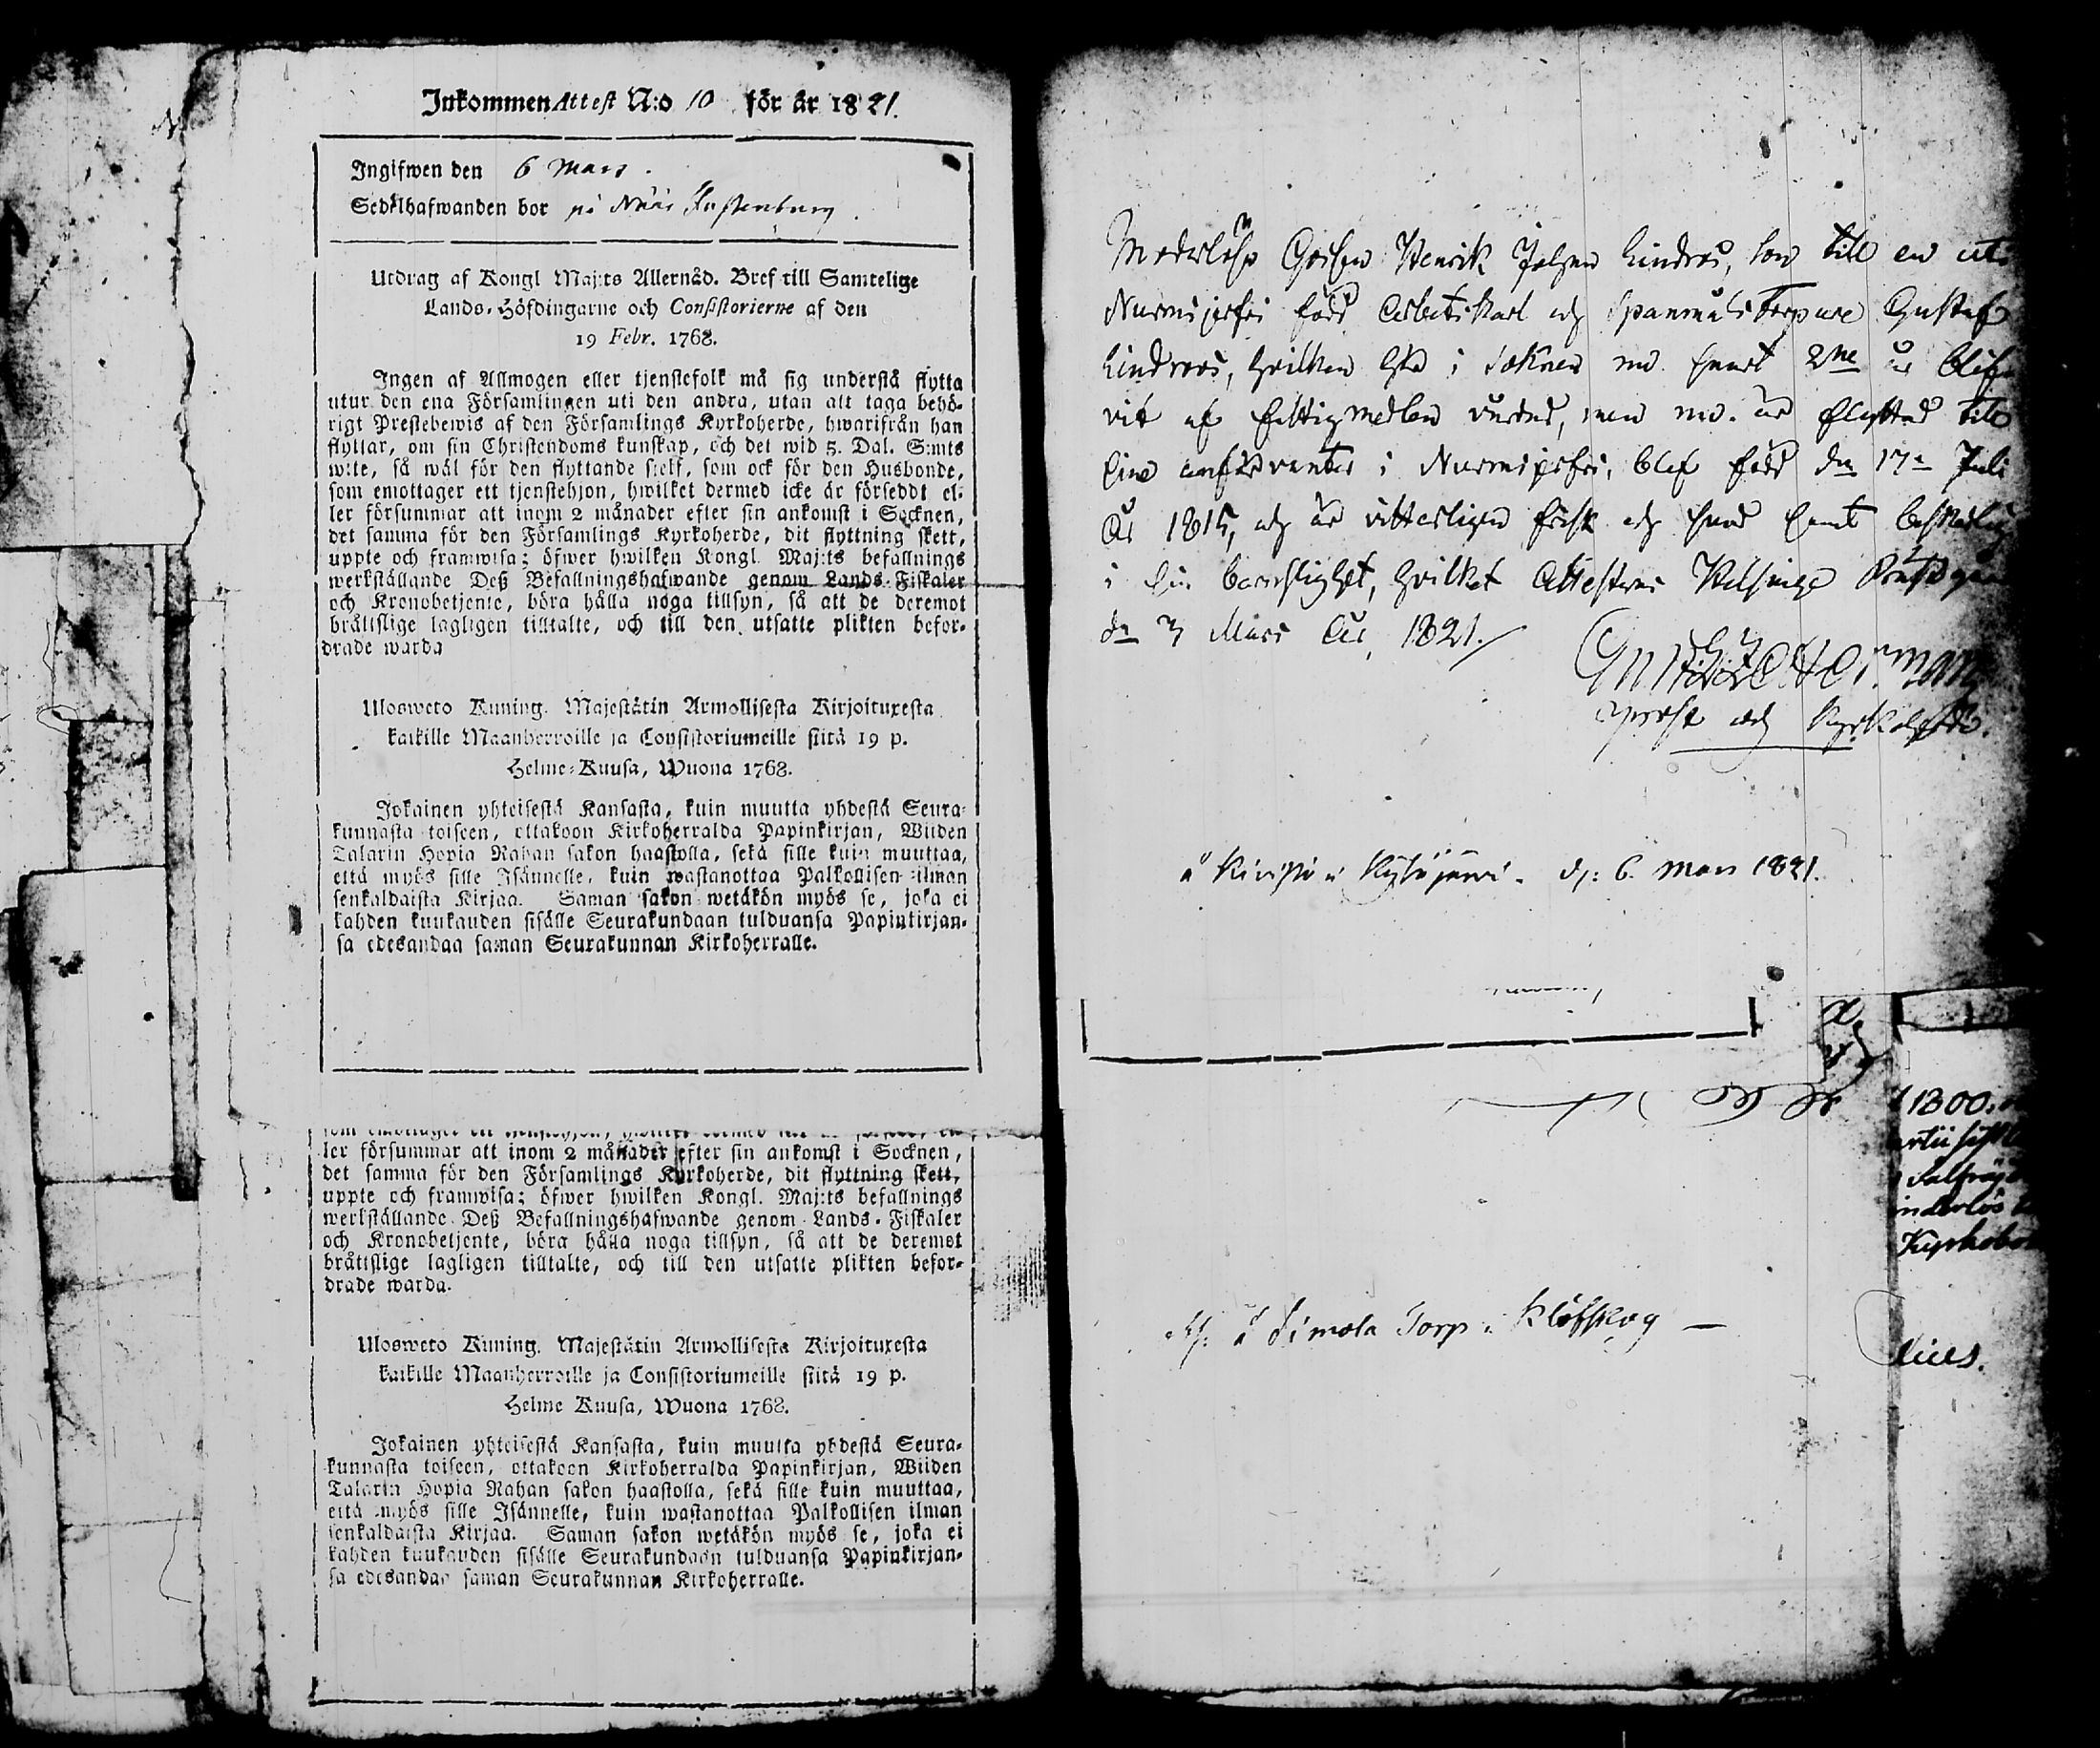 Inkommen Attest N:o 10 för år 1821.
Ingifwen den 6 Mars.
Sedelhafwanden bor på Näs
Utdrag af Kongl Maj:ts Allernåd. Bref till Samtelige
Lands-Höfdingarne och Consistorierne af den
19 Febr. 1768.
Ingen af Allmogen eller tjenstefolk må sig understå flytta
utur den ena Församlingen uti den andra, utan att taga behö-
rigt Prestebewis af den Församlings Kyrkoherde, hwarifrån han
flyttar, om sin Christendoms kunskap, och det wid 5. Dal. S:mts
wite, så wäl för den flyttande sielf, som ock för den Husbonde,
som emottager ett tjenstehjon, hwilket dermed icke är försedt el-
ler försummar att inom 2 månader efter sin ankomst i Socknen,
det samma för den Församlings Kyrkoherde, dit flyttning skett,
uppte och framwisa; öfwer hwilken Kongl Maj:ts befallnings
werkställande Deß Befallningshafwande genom Lands-Fiskaler
och Kronobetjente, böra hålla noga tillsyn, så att de deremot
bråttslige lagligen tilltalte, och till den utsatte plikten befor-
drade warda
Ulosweto Kuning. Majestätin Armollisesta Kirjoituxesta
kaikille Maanherroille ja Consistoriumeille siitä 19 p.
Helme-Kuusa, Wuona 1768.
Jokainen yhteisestä Kansasta, kuin muutta yhdestä Seura-
kunnasta toiseen, ottakoon Kirkoherralda Papinkirjan, Wiiden
Talarin Hopia Rahan sakon haastolla, sekä sille kuin muuttaa,
että myös sille Isännelle, kuin wastanottaa Palkollisen ilman
senkaldaista Kirjaa. Saman sakon wetäkön myös se, joka ei
kahden kuukauden sisälle Seurakundaan tulduansa Papinkirjan-
sa edesandaa saman Seurakunnan Kirkoherralle.
ler försummar att inom 2 månader efter sin ankomst i Socknen,
det samma för den Församlings Kyrkoherde, dit flyttning skett,
uppte och framwisa; öfwer hwilken Kongl. Maj:ts befallnings
werkställande Deß Befallningshafwande genom Lands-Fiskaler
och Kronobetjente, böra hålla noga tillsyn, så att de deremot
bråttslige lagligen tilltalte, och till den utsatte plikten befor-
drade warda.
Ulosweto Kuning. Majestätin Armollisesta Kirjoituxesta
kaikille Maanherroille ja Consistoriumeille siitä 19 p.
Helme Kuusa, Wuona 1768.
Jokainen yhteisestä Kansasta, kuin muutta yhdestä Seura-
kunnasta toiseen, ottakoon Kirkoherralda Papinkirjan, Wiiden
Talarin Hopia Rahan sakon haastolla, sekä sille kuin muuttaa,
että myös sille Isännelle, kuin wastanottaa Palkollisen ilman
senkaldaista Kirjaa. Saman sakon wetäkön myös se, joka ei
kahden kuukauden sisälle Seurakundaan tulduansa Papinkirjan-
sa edesandaa saman Seurakunnan Kirkoherralle.
Moderlöse Gossen Henrik Lindros, son till en uti
Nurmijerfvi född Arbetskarl och Spanmåls Torpare Gustaf
Lindroos, hvilken i Soknen nu snart 2ne år blifvit
af Fattigmedlen vårdad, men nu är flyttad till
sine anförvanter i Nurmijerfvi, blef född den 17e Juli
År 1815, och är vitterligen frisk och sund samt beskedlig
i sin barnslighet, hvilket Attesteras Helsinge Prästgård
den 3 Mars År 1821.
Zetterman
Prost och Kyrkoherde.
å i Kytäjärvi. 6 Mars 1821.
1800.
å Simola Torp i Klöfskog